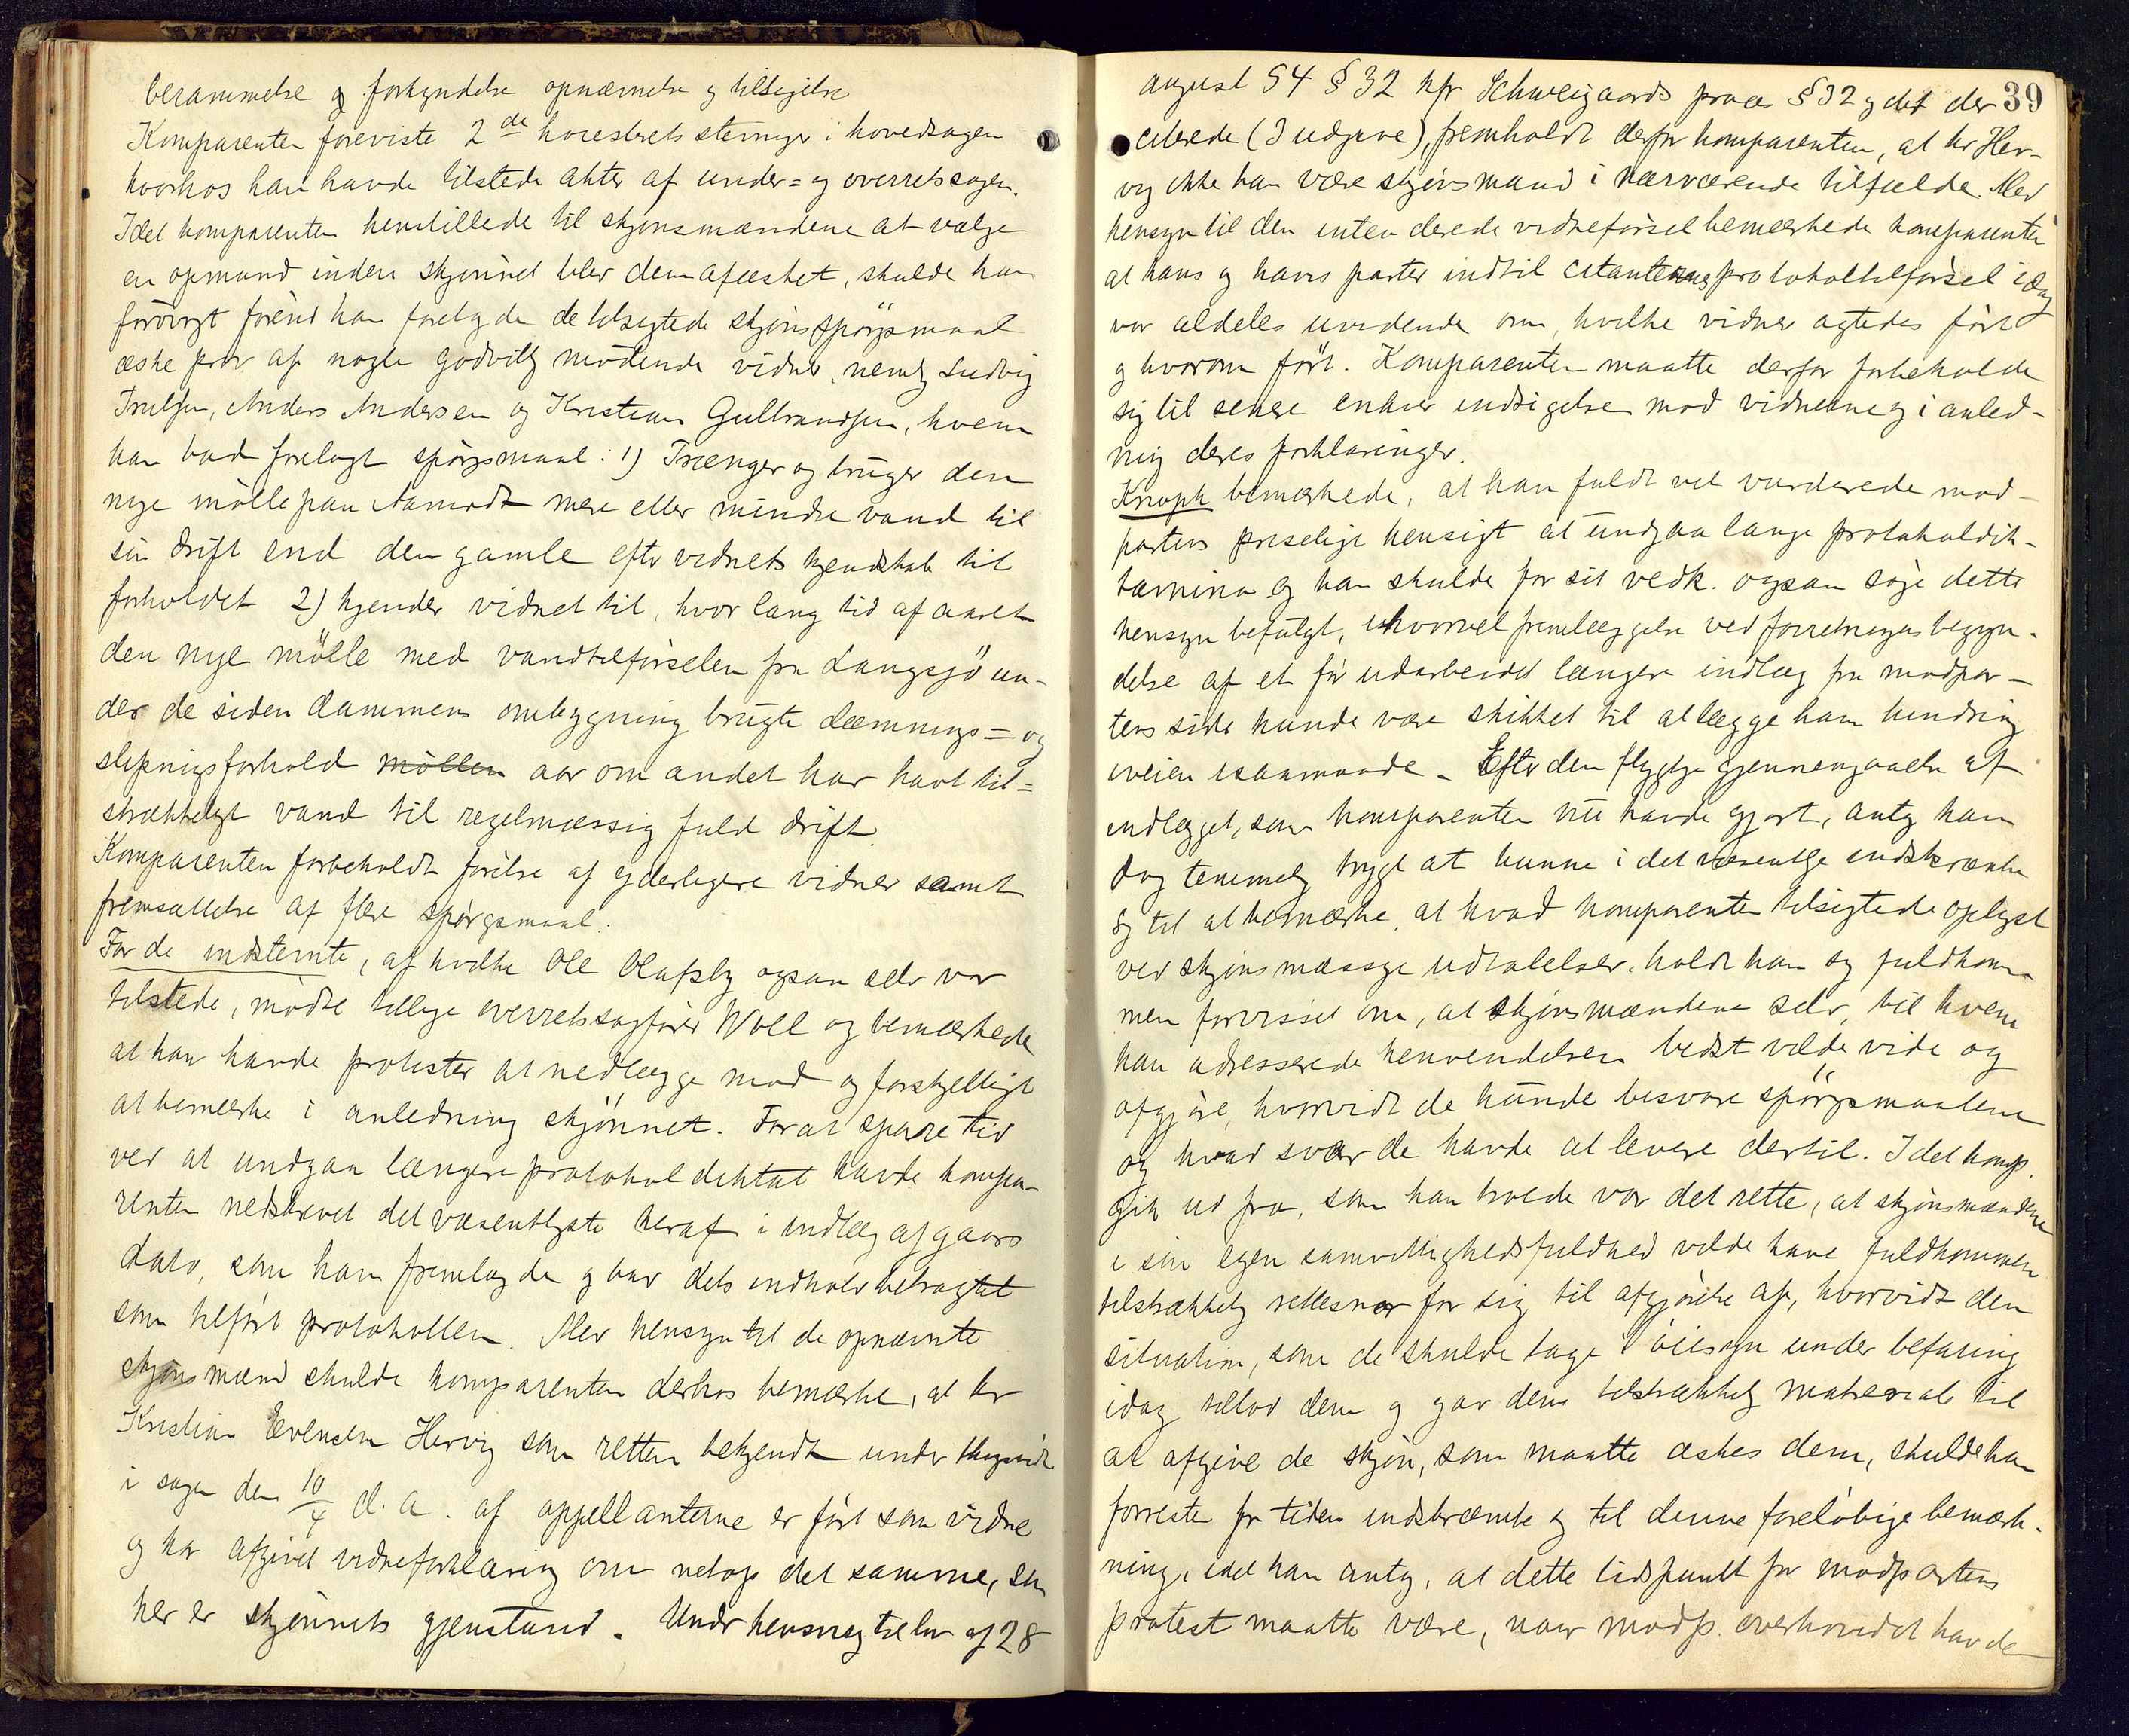 berammelse og forkyndelse opnævnelse og tilsigelse
Komparenten foreviste 2de høiesterets stevninger i hovedsagen
hvorhos han havde tilstede akter af under= og overretssagen.
Idet komparenten henstillede til skjønsmændene at vælge
en opmand inden skjønnet blev dem afæsket, skulde han
forøvrigt førend han forelagde de tilsigtede skjønsspörgsmaal
æske prov af nogle godvillig mødende vidner, nemlig Ludvig
Trulsen, Anders Andersen og Kristian Gulbrandsen, hvem
han bad forelagt spörgsmaal: 1) Trænger og bruger den
nye mölle paa Aamodt mere eller mindre vand til
sin drift end den gamle efter vidnets kjendskab til
forholdet 2) kjender vidnet til, hvor lang tid af aaret
den nye mölle med vandtilførselen fra Langsjö un-
der de siden dammens ombygning brugte dæmnings= og
slipningsforhold möllen aar om andet har havt til=
strækkeligt vand til regelmæssig fuld drift.
Komparenten forbeholdt førelse af yderligere vidner samt
fremsættelse af flere spørgsmaal.
For de indstevnte, af hvilke Ole Olafsby ogsaa selv var
tilstede, mödte tillige overretssagfører Woll og bemærkede
at han havde protester at nedlægge mod og forskjelligt
at bemærke i anledning skjønnet. For at spare tid
ved at undgaa længere protokoldiktat havde kompa-
renten nedskrevet det væsentligste heraf i indlæg af gaars
dato, som han fremlagde og bad dets indhold betragtet
som tilført protokollen. Med hensyn til de opnævnte
skjønsmænd skulde komparenten derhos bemærke, at hr
Kristian Evensen Hervig som retten bekjendt under thingsvidne
i sagen den 10/4 d. a. af appellanterne er ført som vidne
og har afgivet vidneforklaring om netop det samme, som
her er skjønnets gjenstand. Under henvisning til lov af 28
39
august 54 § 32 kfr Schweigaards proces § 32 og det der
citerede (3 udgave), fremholdt derfor komparenten, at hr Her-
vig ikke kan være skjønsmand i nærværende tilfælde. Med
hensyn til den intenderede vidneførsel bemærkede komparenten
at hans og hans parter indtil citanternes protokoltilførsel idag
var aldeles uvidende om, hvilke vidner agtedes ført
og hvorom ført. Komparenten maatte derfor forbeholde
sig til senere enhver indsigelse mod vidnerne og i anled-
ning deres forklaringer.
Knoph bemærkede, at han fuldt vel vurderede mod-
partens priselige hensigt at undgaa lange protokoldik-
og han skulde for sit vedk. ogsaa søge dette
hensyn befulgt, ihvorvel fremlæggelse ved forretningens begyn-
delse af et før udarbeidet længere indlæg fra modpar-
tens side kunde være skikket til at lægge ham hindring
iveien isaamaade. Efter den flygtige gjennemgaaelse af
indlægget, som komparenten nu havde gjort, antog han
dog temmelig trygt at kunne i det væsentlige indskrænke
sig til at bemærke, at hvad komparenten tilsigtede oplyst
ved skjønsmæssige udtalelser, holdt han sig fuldkom-
men forvisset om, at skjønsmændene selv, til hvem
han adresserede henvendelsen bedst vilde vide og
afgjøre, hvorvidt de kunde besvare spörgsmaalene
og hvad svar de havde at levere dertil. Idet komp.
gik ud fra, som han troede var det rette, at skjønsmændene
i sin egen samvittighedsfuldhed vilde have fuldkommen
tilstrækkelig rettesnor for sig til afgjørelse af, hvorvidt den
situation, som de skulde tage i øiesyn under befaring
idag tillod dem og gav dem tilstrækkelig materiale til
at afgive de skjøn, som maatte æskes dem, skulde han
forresten for tiden indskrænke sig til denne foreløbige bemærk-
ning, idet han antog, at dette tidspunkt for modpartens
protest maatte være, naar modp. overhovedet havde